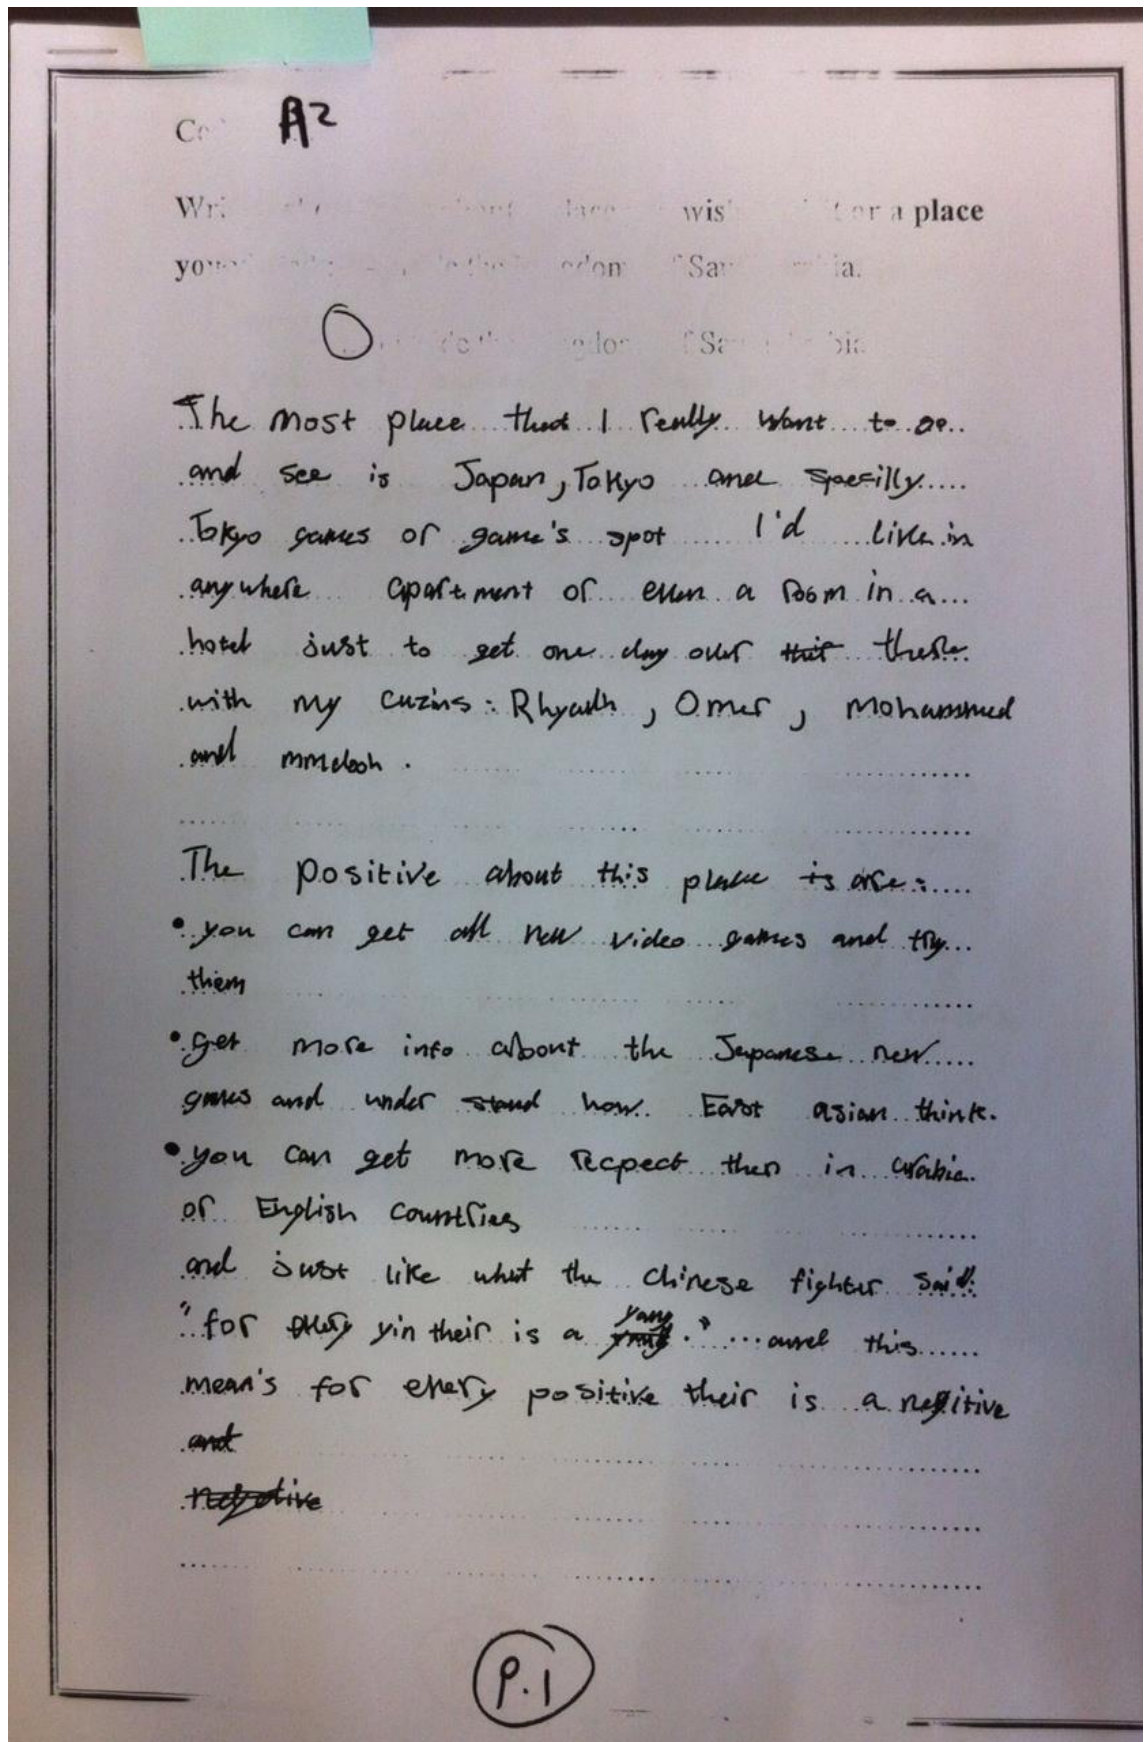 A2
wis or a place
The most place that I really want to go
and see is Japan, Tokyo and spesilly
Tokyo games or game's spot I'd live in
anywhere apartment or even a room in a
hotel just to get one day over there
with my cuzins: Rhyadh, Omer, Mohammed
and
The positive about this place is are:
• you can get all new video games and try
them
• get more info about the Japanese new
games and under stand how East asian think.
• you can get more recpect then in arabia
or English countries
and just like what the chinese fighter said:
"for every yin their is a yang." and this
mean's for every positive their is a negitive
and
negative
P.1